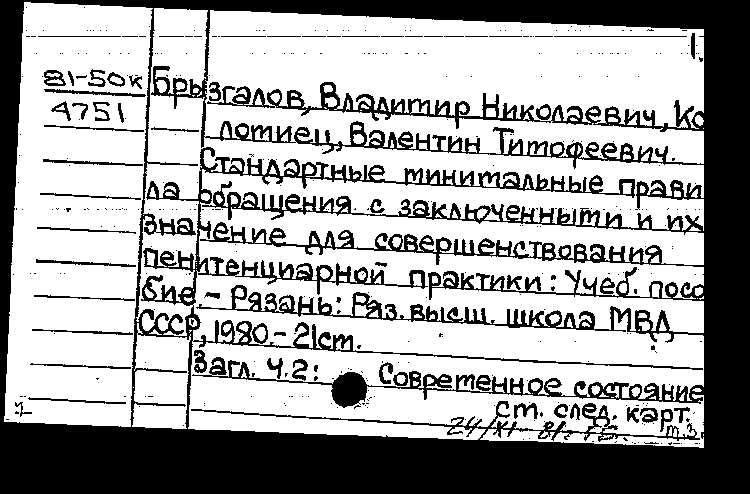 1.
81-50к Брызгалов, Владимир Николаевич, Ко
4751 лотиец, Валентин Тимофеевич.
Стандартные минимальные прави
ла обращения с заключенными и их
значение для совершенствования
пенитенциарной практики: Учеб. посо
бие. – Рязань: Ряз. высш. школа МВД
СССР, 1980. – 21 см.
Загл. ч.2: Современное состояние
см. след. карт.
24/XI - 81г. т.3.